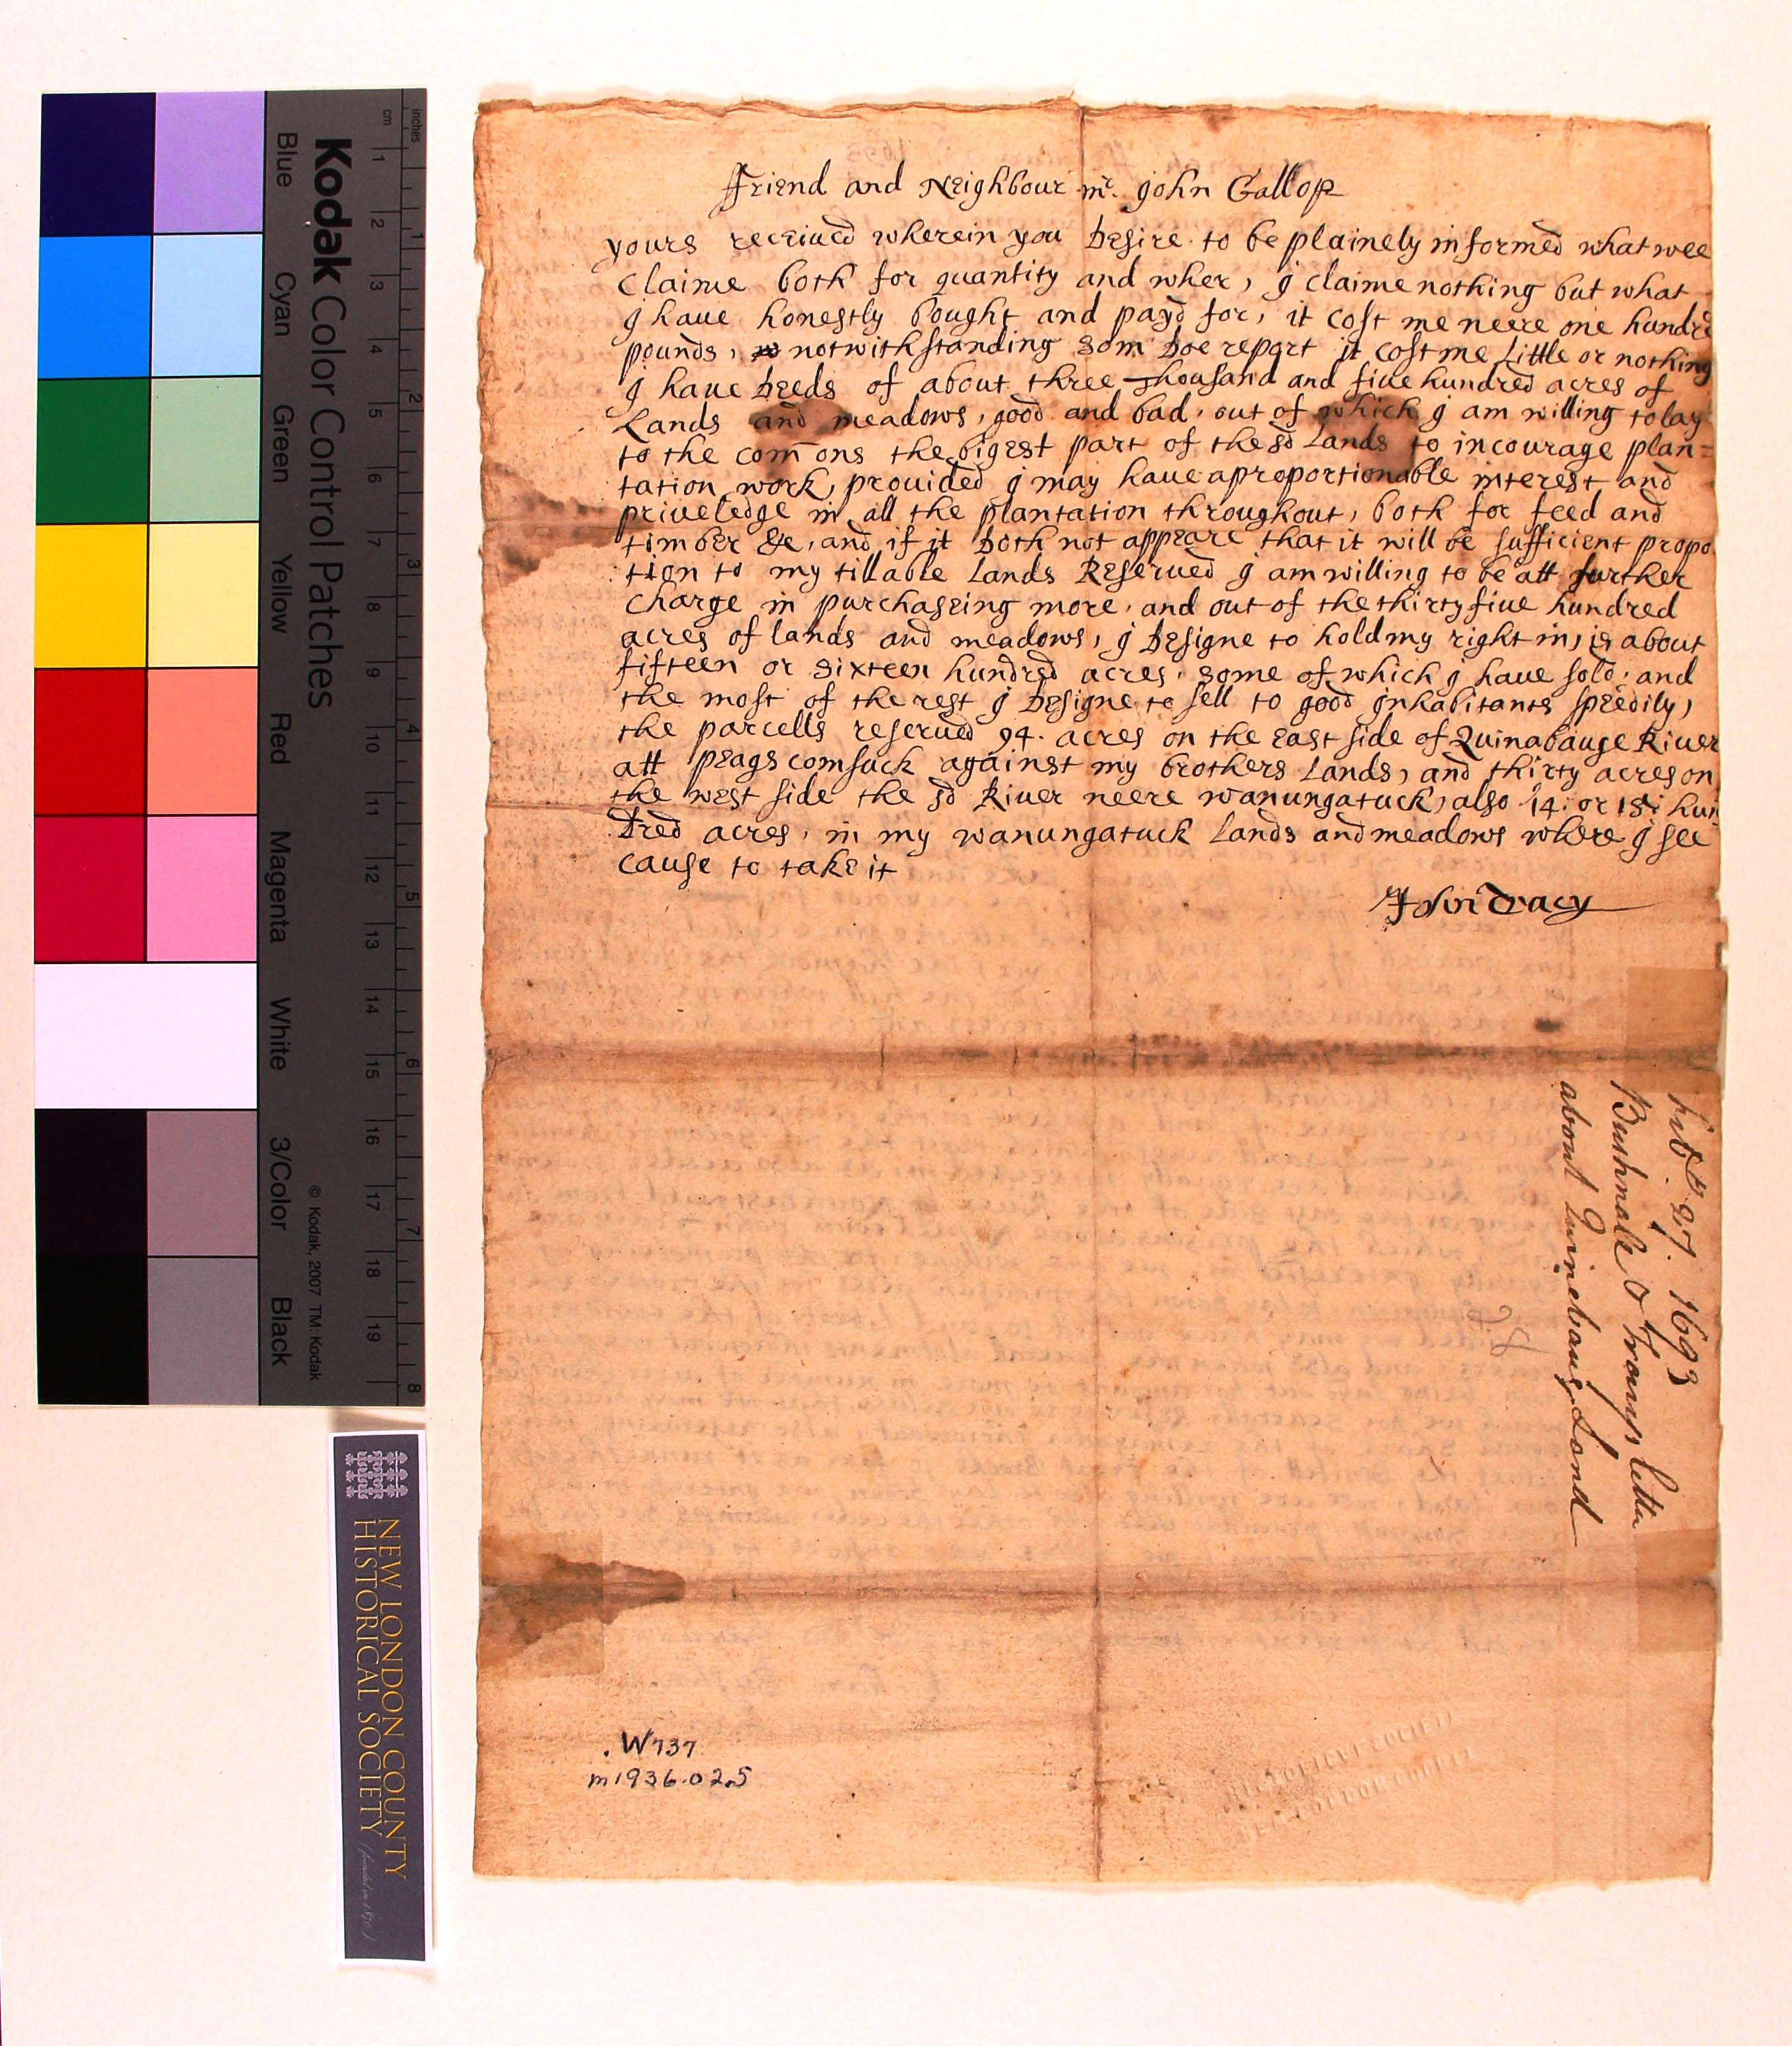 ffriend and Neighbour mr. John Gallop
yours receiued wherein you Desire to be plainely informed what wee
Claime both for quantity and wher, J claime nothing but what
J haue honestly bought and payd for, it cost me neere one hundrd
pounds, notwithstanding som Doe report it cost me Little or nothing
J haue Deeds of about three Thousand and fiue hundred acres of
Lands and meadows, good and bad, out of which J am willing to lay
to the comons the bigest part of the sd Lands to incourage plan=
tation work, prouided J may haue a proportionable interest and
priueledge in all the plantation throughout, both for feed and
timber &c, and if it Doth not appeare that it will be sufficient propo
tion to my tillable Lands Reserued J am willing to be att further
Charge in purchaseing more, and out of the thirty fiue hundred
acres of lands and meadows, J Designe to hold my right in, is about
fifteen or sixteen hundred acres, some of which J haue sold, and
the most of the rest J Designe to sell to good Jnhabitants speedily,
the parcells reserued 94. acres on the east side of Quinabauge Riuer
att peagscomsuck against my brothers Lands, and thirty acres on
the west side the sd Riuer neere wanungatuck, also 14: or 15: hun
Dred acres, in my wanungatuck Lands and meadows where J see
cause to take it
John Tracy
27. 1693
Bushnale & Tracys letter
about Quinebaug Land
W737
m1936.02.5
HISTORICAL SOCIETY
NEW LONDON COUNTY
Kodak Color Control Patches
Blue Cyan Green Yellow Red Magenta White 3/Color Black
© Kodak, 2007 TM: Kodak
inches 1 2 3 4 5 6 7 8
cm 1 2 3 4 5 6 7 8 9 10 11 12 13 14 15 16 17 18 19
NEW LONDON COUNTY
HISTORICAL SOCIETY (founded in 1870)